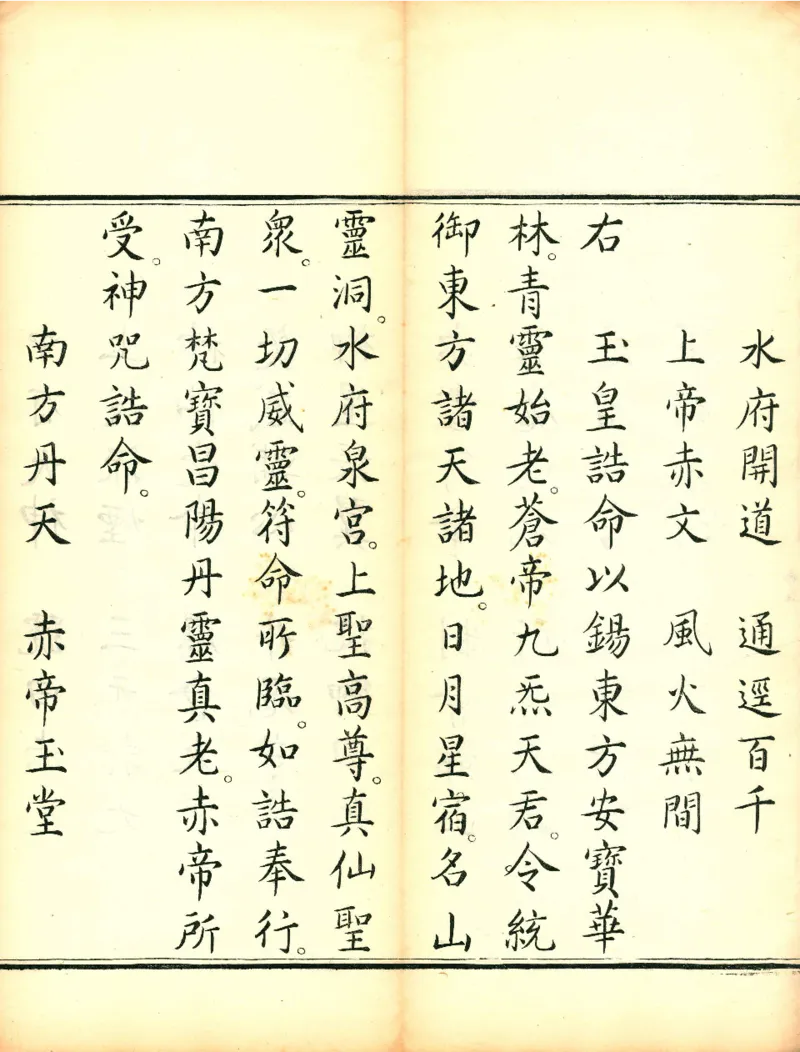 水府開道　通逕百千
上帝赤文　風火無間
右　玉皇誥命以錫東方安寶華
林。青靈始老。蒼帝九炁天君。令統
御東方諸天諸地。日月星宿。名山
靈洞。水府泉宮。上聖高尊。真仙聖
衆。一切威靈。符命所臨。如誥奉行。
南方梵寶昌陽丹靈真老。赤帝所
受。神咒誥命。
南方丹天　赤帝玉堂